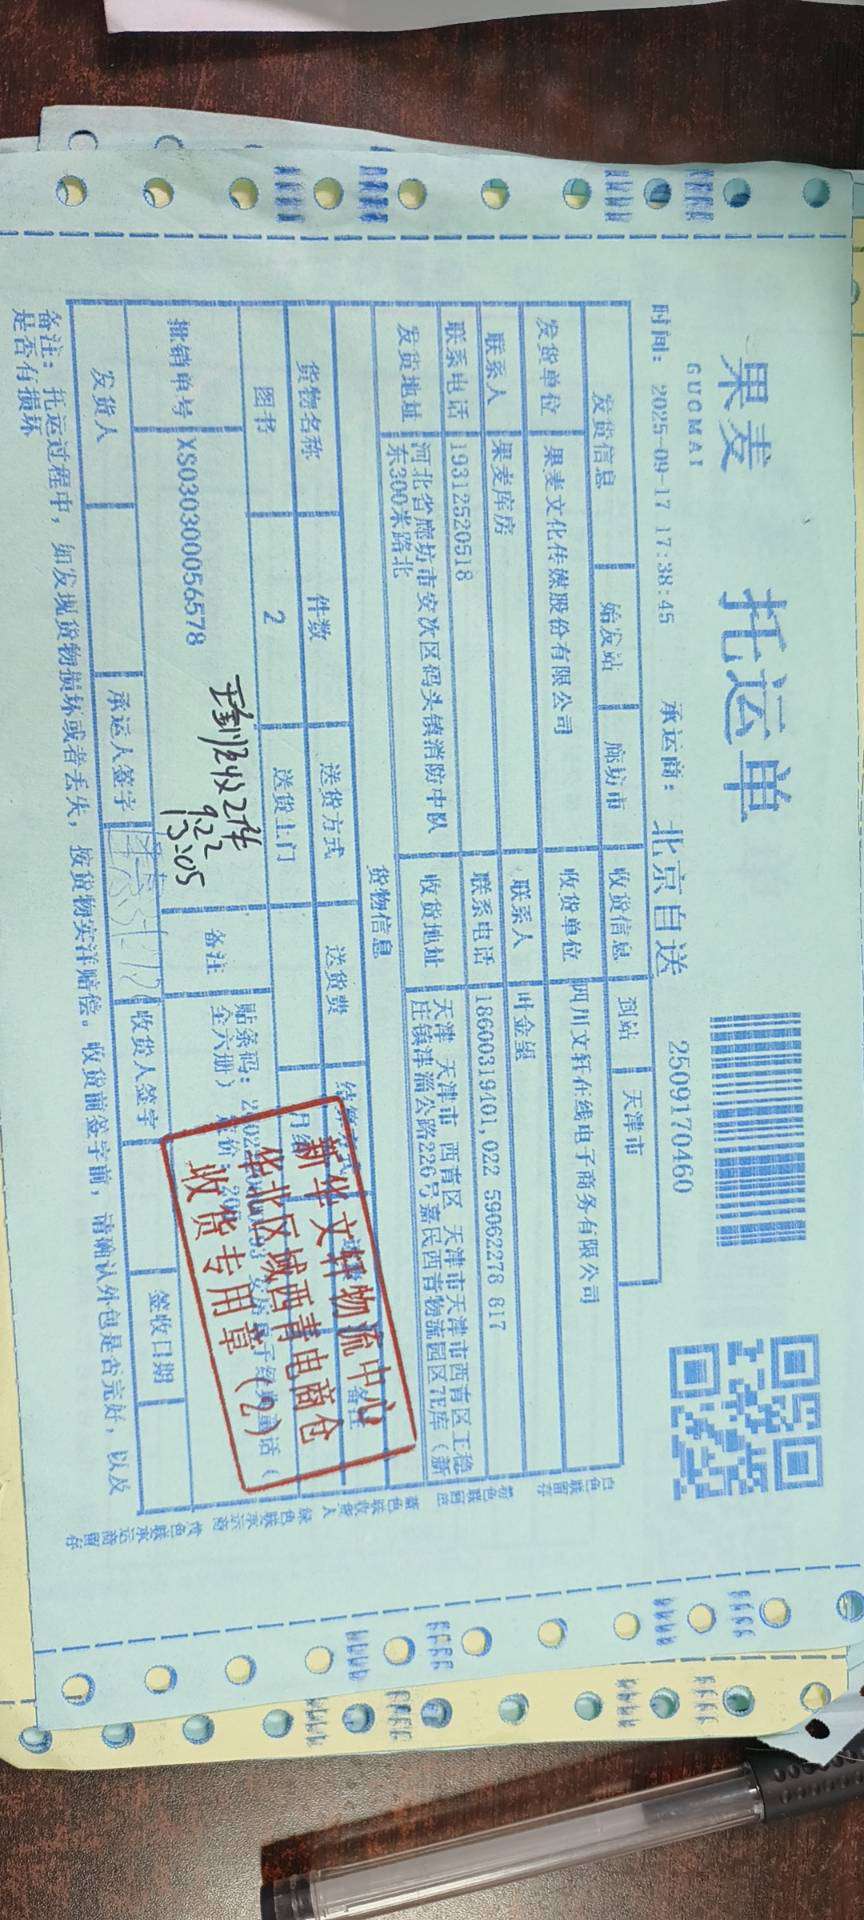 果麦 托运单
GUOMAI
2509170460
时间: 2025-09-17 17:38:45 承运商: 北京自送
发货信息 始发站 廊坊市 收货信息 到站 天津市
发货单位 果麦文化传媒股份有限公司 收货单位 四川文轩在线电子商务有限公司
联系人 果麦库房 联系人 叶金星
联系电话 19312520518 联系电话 18600319401,022 59062278 817
发货地址 河北省廊坊市安次区码头镇消防中队
东300米路北
收货地址 天津 天津市 西青区 天津市天津市西青区王稳
庄镇津淄公路226号嘉民西青物流园区7E库(新
货物信息
货物名称 件数 送货方式 送货费 备注
图书 2 送货上门 月结
批销单号 XS030300056578 备注 贴条码:
全六册)
实收2件
9.22
15:05
新华文轩物流中心
华北区域西青电商仓
收货专用章(2)
发货人 承运人签字 收货人签字 签收日期
备注: 托运过程中, 如发现货物损坏或者丢失, 按货物实洋赔偿。收货前签字前, 请确认外包是否完好, 以及
是否有损坏
白色联留存
粉色联回单
蓝色联收货人
绿色联承运商
黄色联承运商留存